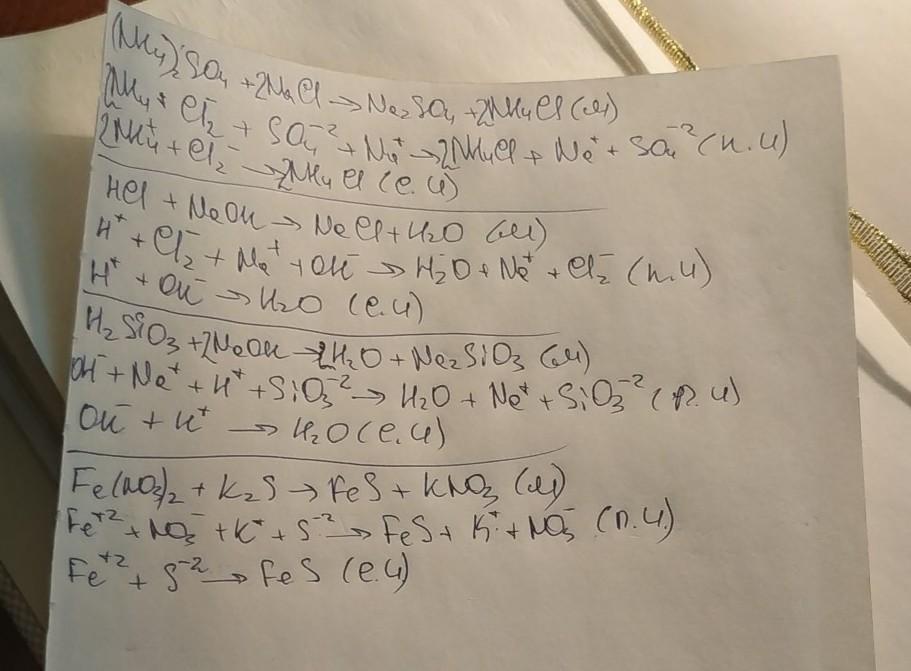 (NH₄)₂SO₄ + 2NaCl → Na₂SO₄ + 2NH₄Cl (м)
2NH₄⁺ Cl₂⁻ + SO₄⁻² + Na⁺ → 2NH₄Cl + Na⁺ + SO₄⁻² (п.и)
2NH₄⁺ + Cl₂⁻ → 2NH₄Cl (с.и)
HCl + NaOH → NaCl + H₂O (м)
H⁺ + Cl₂⁻ + Na⁺ + OH⁻ → H₂O + Na⁺ + Cl₂⁻ (п.и)
H⁺ + OH⁻ → H₂O (с.и)
H₂SiO₃ + 2NaOH → 2H₂O + Na₂SiO₃ (м)
OH⁻ + Na⁺ + H⁺ + SiO₃⁻² → H₂O + Na⁺ + SiO₃⁻² (п.и)
OH⁻ + H⁺ → H₂O (с.и)
Fe(NO₃)₂ + K₂S → FeS + KNO₃ (м)
Fe⁺² + NO₃⁻ + K⁺ + S⁻² → FeS + K⁺ + NO₃⁻ (п.и)
Fe⁺² + S⁻² → FeS (с.и)